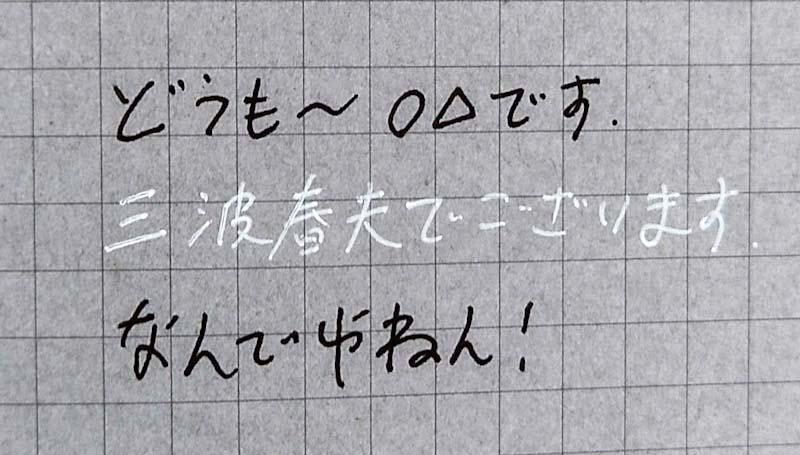 どうも〜○△です.
三波春夫でございます.
なんでやねん!